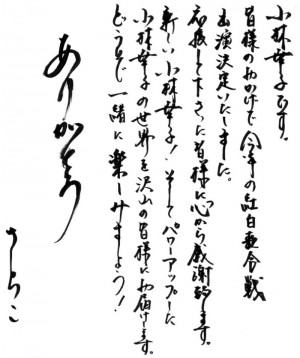 小林幸子です。
皆様のおかげで今年の紅白歌合戦
出演決定いたしました。
応援して下さた皆様に心から感謝致します。
新しい小林幸子!そしてパワーアップした
小林幸子の世界を沢山の皆様にお届けします。
どうぞ一緒に楽しみましょう!
ありがとう
さちこ